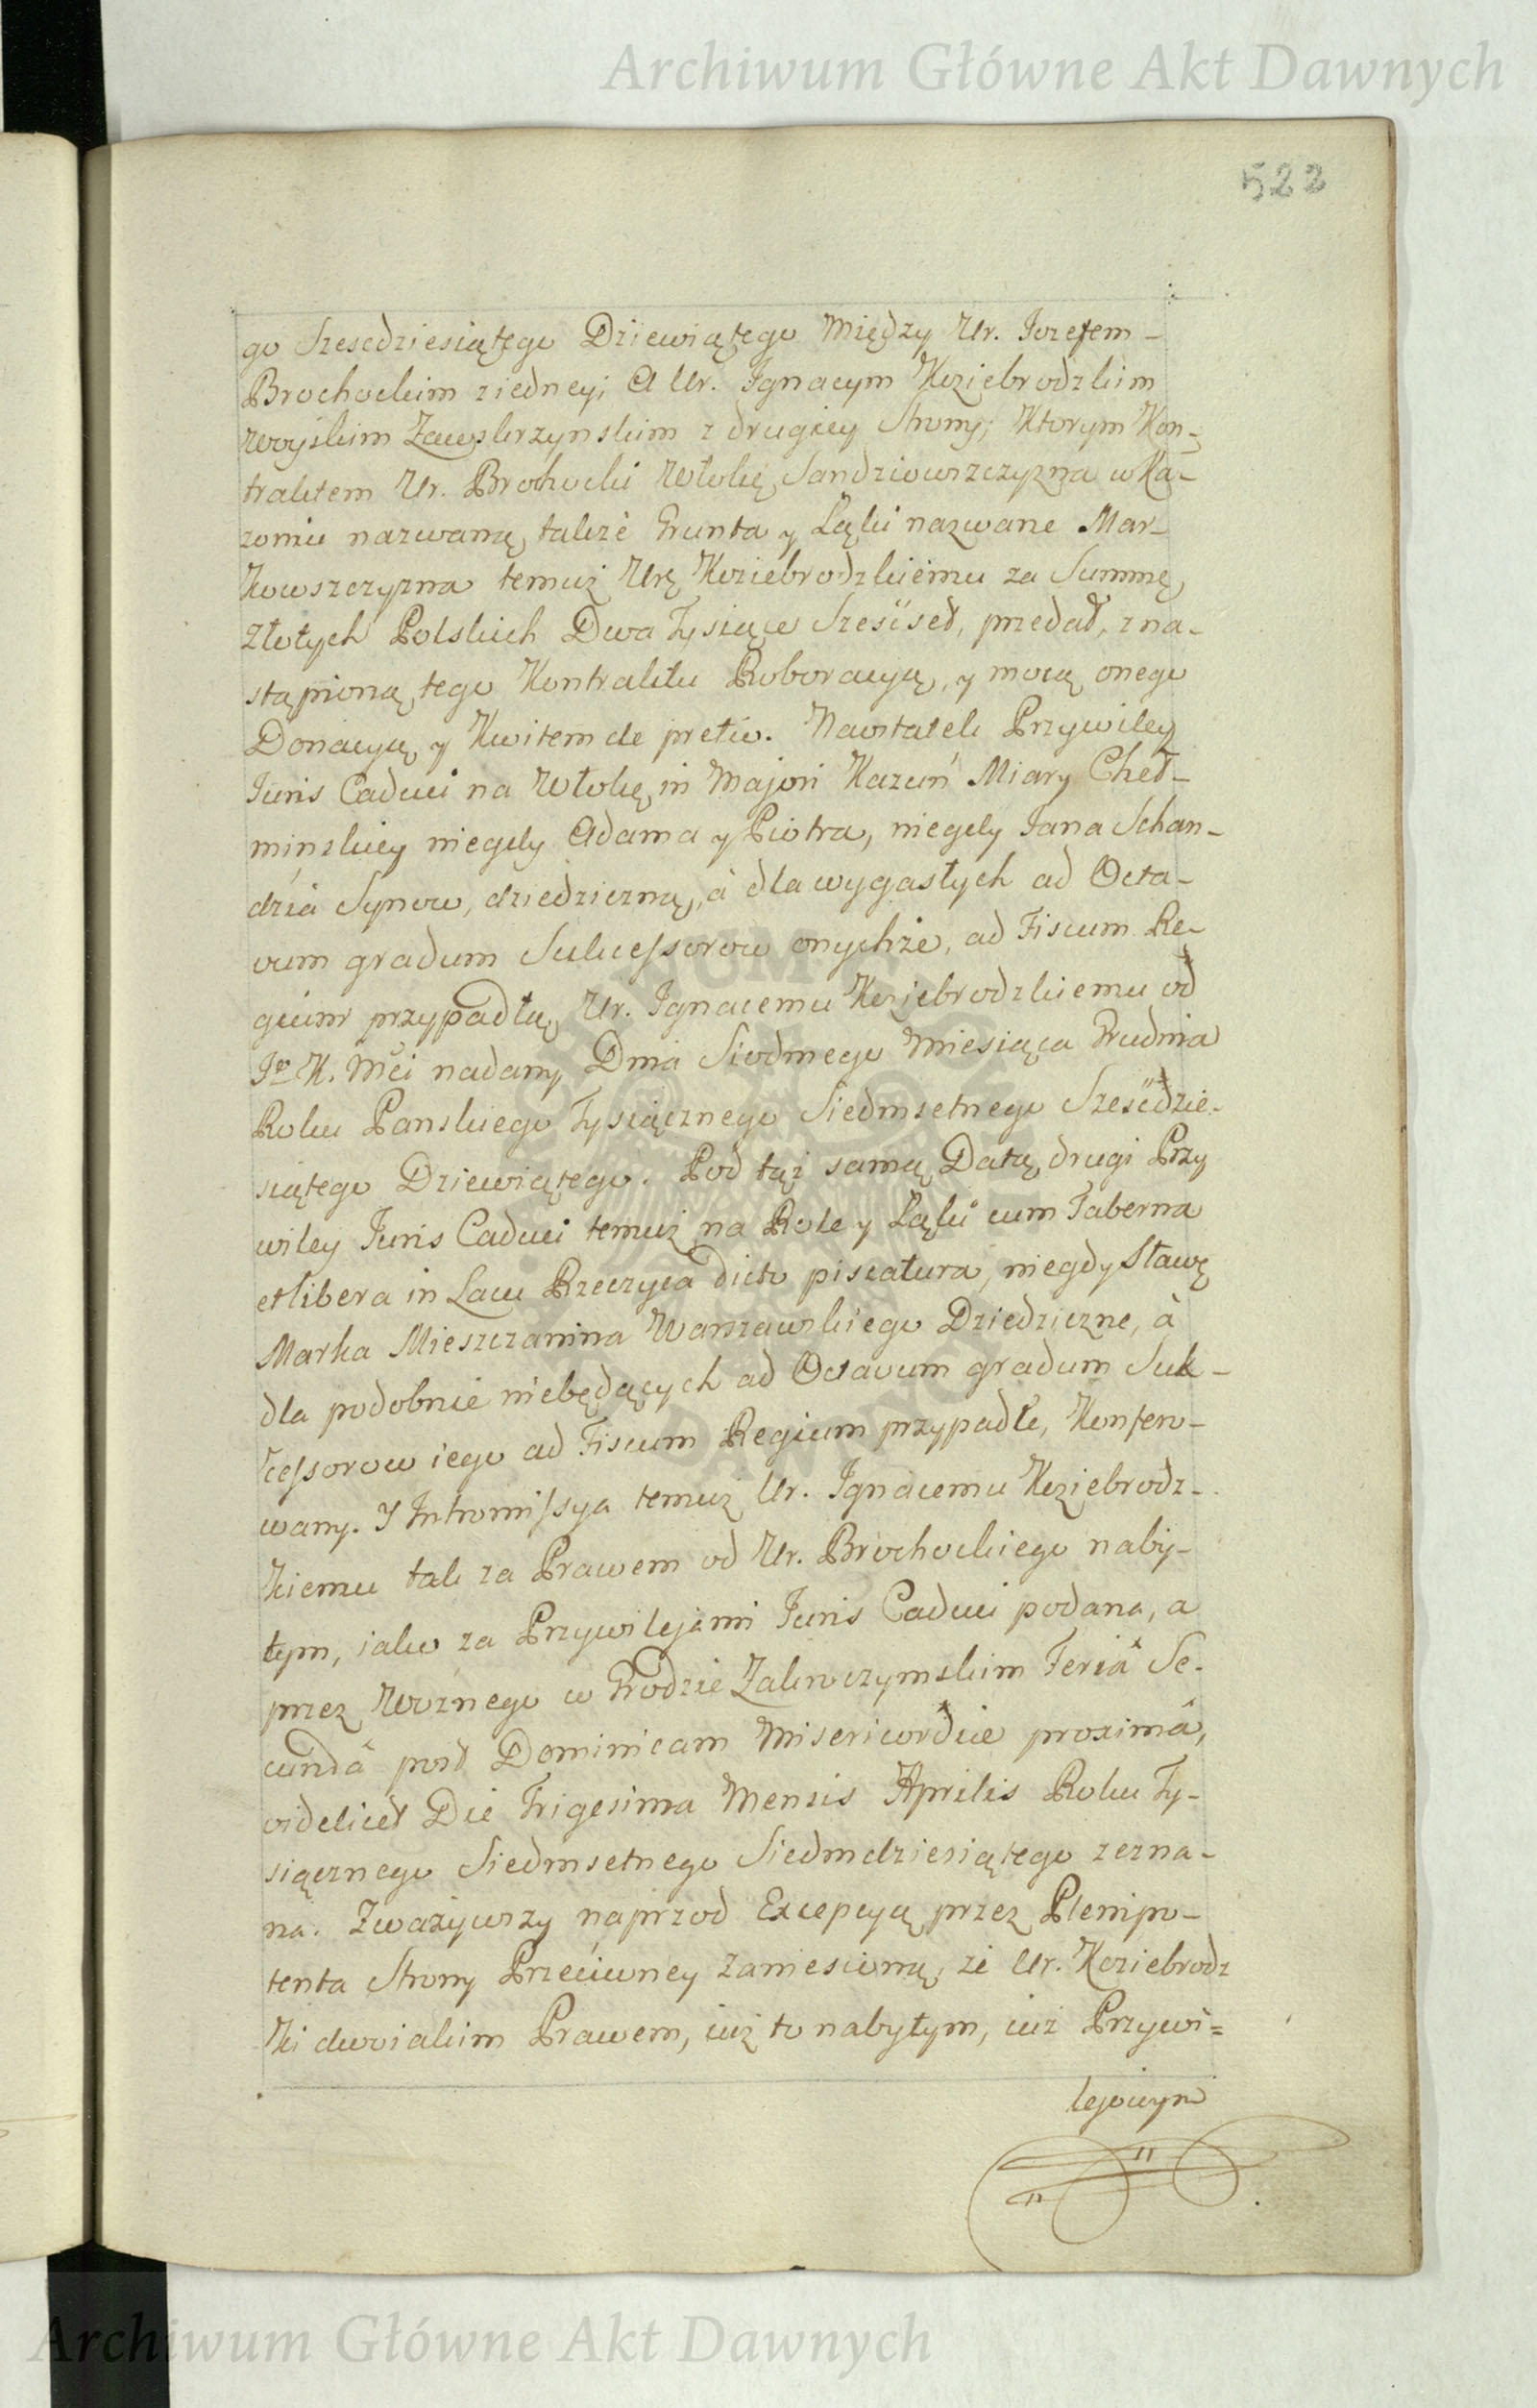 Archiwum Główne Akt Dawnych
522
go Szescdziesiątego Dziewiątego Między Ur. Jozefem -
Brochockim ziedney, A Ur. Ignacym Koziebrodzkim
Woyskim Zawskrzynskim z drugiey Strony; Ktorym Kon-
traktem Ur. Brochocki Włokę Sandziowszczyzna w Ka-
zoniu nazwaną, także Grunta y Łąki nazwane Mar-
kowszczyzna temuż Urę Koziebrodzkiemu za Summę
Złotych Polskich Dwa Tysiące Sześćset, przedał, z na-
stąpioną tego Kontraktu Roboracyą, y mocą onego
Donacyą y Kwitem de pretio. Nawtatek Przywiley
Juris Caduci na Włokę in Majori Kazuń Miary Cheł-
minskiey niegdy Adama y Piotra, niegdy Jana Schan-
dzia Synow, dziedziczną, à dla wygasłych ad Octa-
vum gradum Sukcessorow onychże, ad Fiscum Re-
gium przypadłą, Ur. Ignacemu Koziebrodzkiemu od
Jo K. Mci nadany Dnia Siodmego Miesiąca Grudnia
Roku Panskiego Tysiącznego Siedmsetnego Sześćdzie-
siątego Dziewiątego. Pod tąż samą Datą, drugi Przy
wiley Juris Caduci temuż na Role y Łąki cum Taberna
et libera in Lacu Rzeczyca dicto piscatura, niegdy Sławę
Marka Mieszczanina Warszawskiego Dziedziczne, à
dla podobnie niebędących ad Octavum gradum Suk-
cessorow iego ad Fiscum Regium przypadłe, Konfero-
wany. Y Intromissya temuż Ur. Ignacemu Koziebrodz-
kiemu tak za Prawem od Ur. Brochockiego naby-
tym, iako za Przywilejami Juris Caduci podana, a
przez Woznego w Grodzie Zakroczymskim Feriâ Se-
cundâ post Dominicam Misericordie proximâ,
videlicet Die Trigesima Mensis Aprilis Roku Ty-
siącznego Siedmsetnego Siedmdziesiątego zezna-
na. Zważywszy naprzod Excepcyą przez Plenipo-
tenta Strony Przeciwney zaniesioną, że Ur. Koziebrodz
ki dwoiakim Prawem, iuż to nabytym, iuż Przywi=
lejowym
Archiwum Główne Akt Dawnych